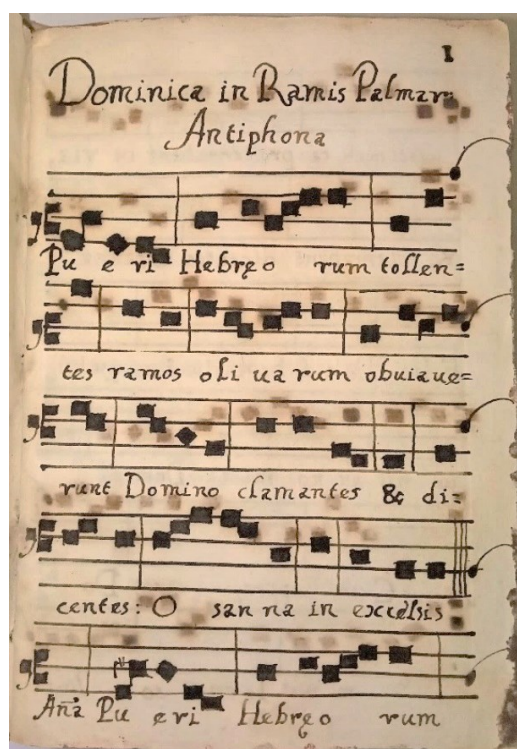 1
Dominica in Ramis Palmar:
Antiphona
Pu e ri Hebręo rum tollen=
tes ramos oli ua rum obuiaue=
runt Domino clamantes & di=
centes: O san na in excelsis
Aña Pu eri Hebręo rum